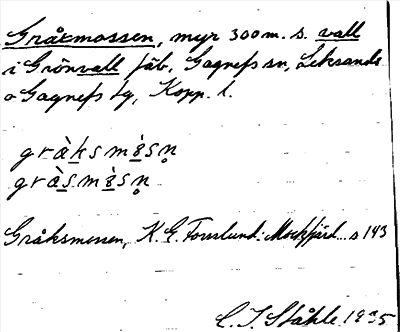 Gråksmossen, myr 300 m. s. vall
i Grönvall fäb. Gagnefs sn, Leksands
o Gagnefs tg, Kopp. l.
gràksmɘ̀sn̥
gràsmɘ̀sn̥
Gråksmossen, K. G. Forslund: Mockfjärd... s 143
C. I. Ståhle 1935